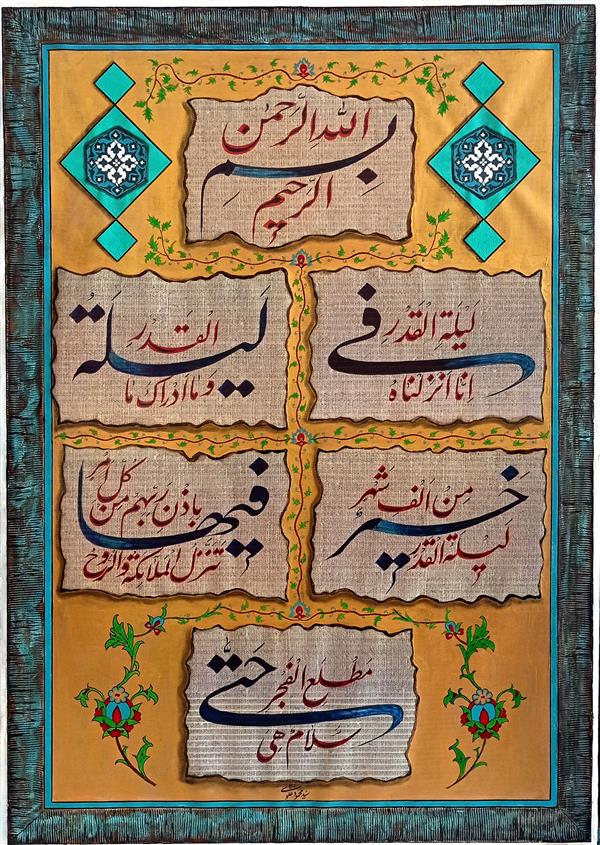 بسم
الله الرحمن
الرحيم
انا انزلناه
في
ليلة القدر
وما ادراك ما
ليلة
القدر
ليلة القدر
خير
من الف شهر
تنزل الملائكة والروح
فيها
باذن ربهم من
كل امر
سلام هي
حتى
مطلع الفجر